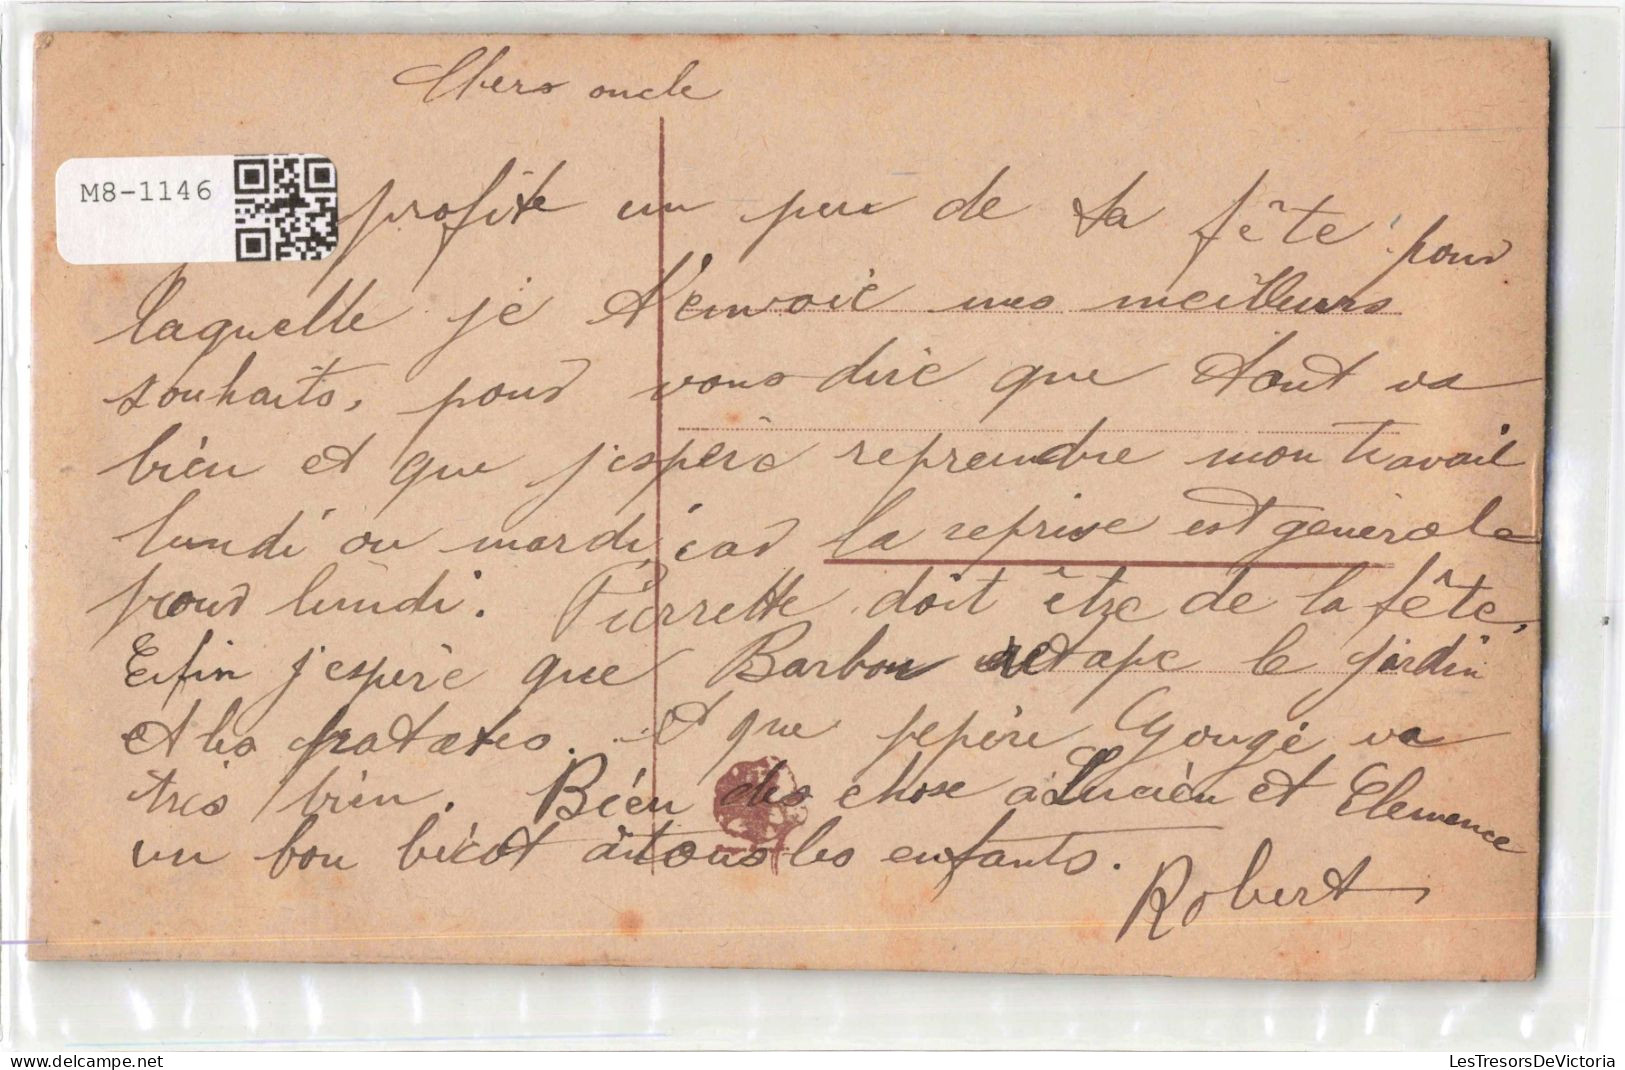 Chers oncle
M8-1146
profite un peu de ta fête pour
laquelle je t'envoie mes meilleurs
souhaits, pour vous dire que tout va
bien et que j'espère reprendre mon travail
lundi ou mardi, car la reprise est générale
pour lundi. Pierrette doit être de la fête,
Enfin j'espère que Barbon retape le jardin
et les patates. et que pepère Gougé va
très bien. Bien des chose à Lucien et Clemence
un bon bécot à tous les enfants.
Robert
LesTresorsDeVictoria
delcampe.net